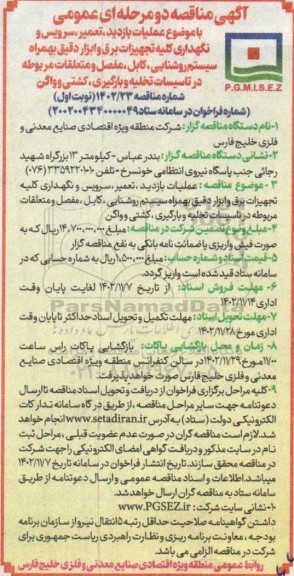 آگهی مناقصه دو مرحله ای عمومی
با موضوع عملیات بازدید، تعمیر، سرویس و
نگهداری کلیه تجهیزات برق و ابزار دقیق بهمراه
سیستم روشنایی، کابل، مفصل و متعلقات مربوطه
در تاسیسات تخلیه و بارگیری، کشتی و واگن
P.G.M.I.S.E.Z
شماره مناقصه ۱۴۰۲/۲۳ (نوبت اول)
(شماره فراخوان در سامانه ستاد ۲۰۰۲۰۰۴۳۴۰۰۰۰۰۴۹)
۱-نام دستگاه مناقصه گزار: شرکت منطقه ویژه اقتصادی صنایع معدنی و
فلزی خلیج فارس
۲-نشانی دستگاه مناقصه گزار: بندرعباس - کیلومتر ۱۳ بزرگراه شهید
رجائی جنب پاسگاه نیروی انتظامی خونسرخ - تلفن ۱۰-۳۳۵۹۲۲۰۱ (۰۷۶)
۳- موضوع مناقصه : عملیات بازدید، تعمیر، سرویس و نگهداری کلیه
تجهیزات برق و ابزار دقیق بهمراه سیستم روشنایی، کابل، مفصل و متعلقات
مربوطه در تاسیسات تخلیه و بارگیری، کشتی و واگن
۴-مبلغ و نوع تضمین شرکت در مناقصه: مبلغ ۱۴,۷۰۰,۰۰۰,۰۰۰ ریال که به
صورت فیش واریزی یا ضمانت نامه بانکی به نفع مناقصه گزار
۵-قیمت اسناد و شماره حساب: مبلغ ۱,۵۰۰,۰۰۰ ریال به شماره حسابی که در
سامانه ستاد قید شده است واریز گردد.
۶- مهلت فروش اسناد: از تاریخ ۱۴۰۲/۱۱/۷ لغایت پایان وقت
اداری ۱۴۰۲/۱۱/۱۴
۷-مهلت تحویل اسناد: مهلت تکمیل و تحویل اسناد حداکثر تا پایان وقت
اداری مورخ ۱۴۰۲/۱۱/۲۸
۸- زمان و محل بازگشایی پاکات: بازگشایی پاکات راس ساعت
مورخ ۱۴۰۲/۱۱/۲۹ در سالن کنفرانس منطقه ویژه اقتصادی صنایع
معدنی و فلزی خلیج فارس صورت خواهد پذیرفت.
۹-کلیه مراحل برگزاری فراخوان از دریافت و تحویل اسناد مناقصه تا ارسال
دعوتنامه جهت سایر مراحل مناقصه، از طریق درگاه سامانه تدارکات
الکترونیکی دولت (ستاد) به آدرس www.setadiran.ir انجام خواهد
شد. لازم است مناقصه گران در صورت عدم عضویت قبلی، مراحل ثبت
نام در سایت مذکور و دریافت گواهی امضای الکترونیکی را جهت شرکت
در مناقصه محقق سازند. تاریخ انتشار فراخوان در سامانه تاریخ ۱۴۰۲/۱۱/۷
میباشد. اطلاعات و اسناد مناقصه عمومی و ارسال دعوتنامه از طریق
سامانه ستاد به مناقصه گران ارسال خواهد شد.
۱۰-نشانی سایت شرکت: www.PGSEZ.ir
داشتن گواهینامه صلاحیت حداقل رتبه ۵ انتقال نیرو از سازمان برنامه
بودجه، معاونت برنامه ریزی و نظارت راهبردی ریاست جمهوری برای
شرکت در مناقصه الزامی می باشد.
روابط عمومی منطقه ویژه اقتصادی صنایع معدنی و فلزی خلیج فارس